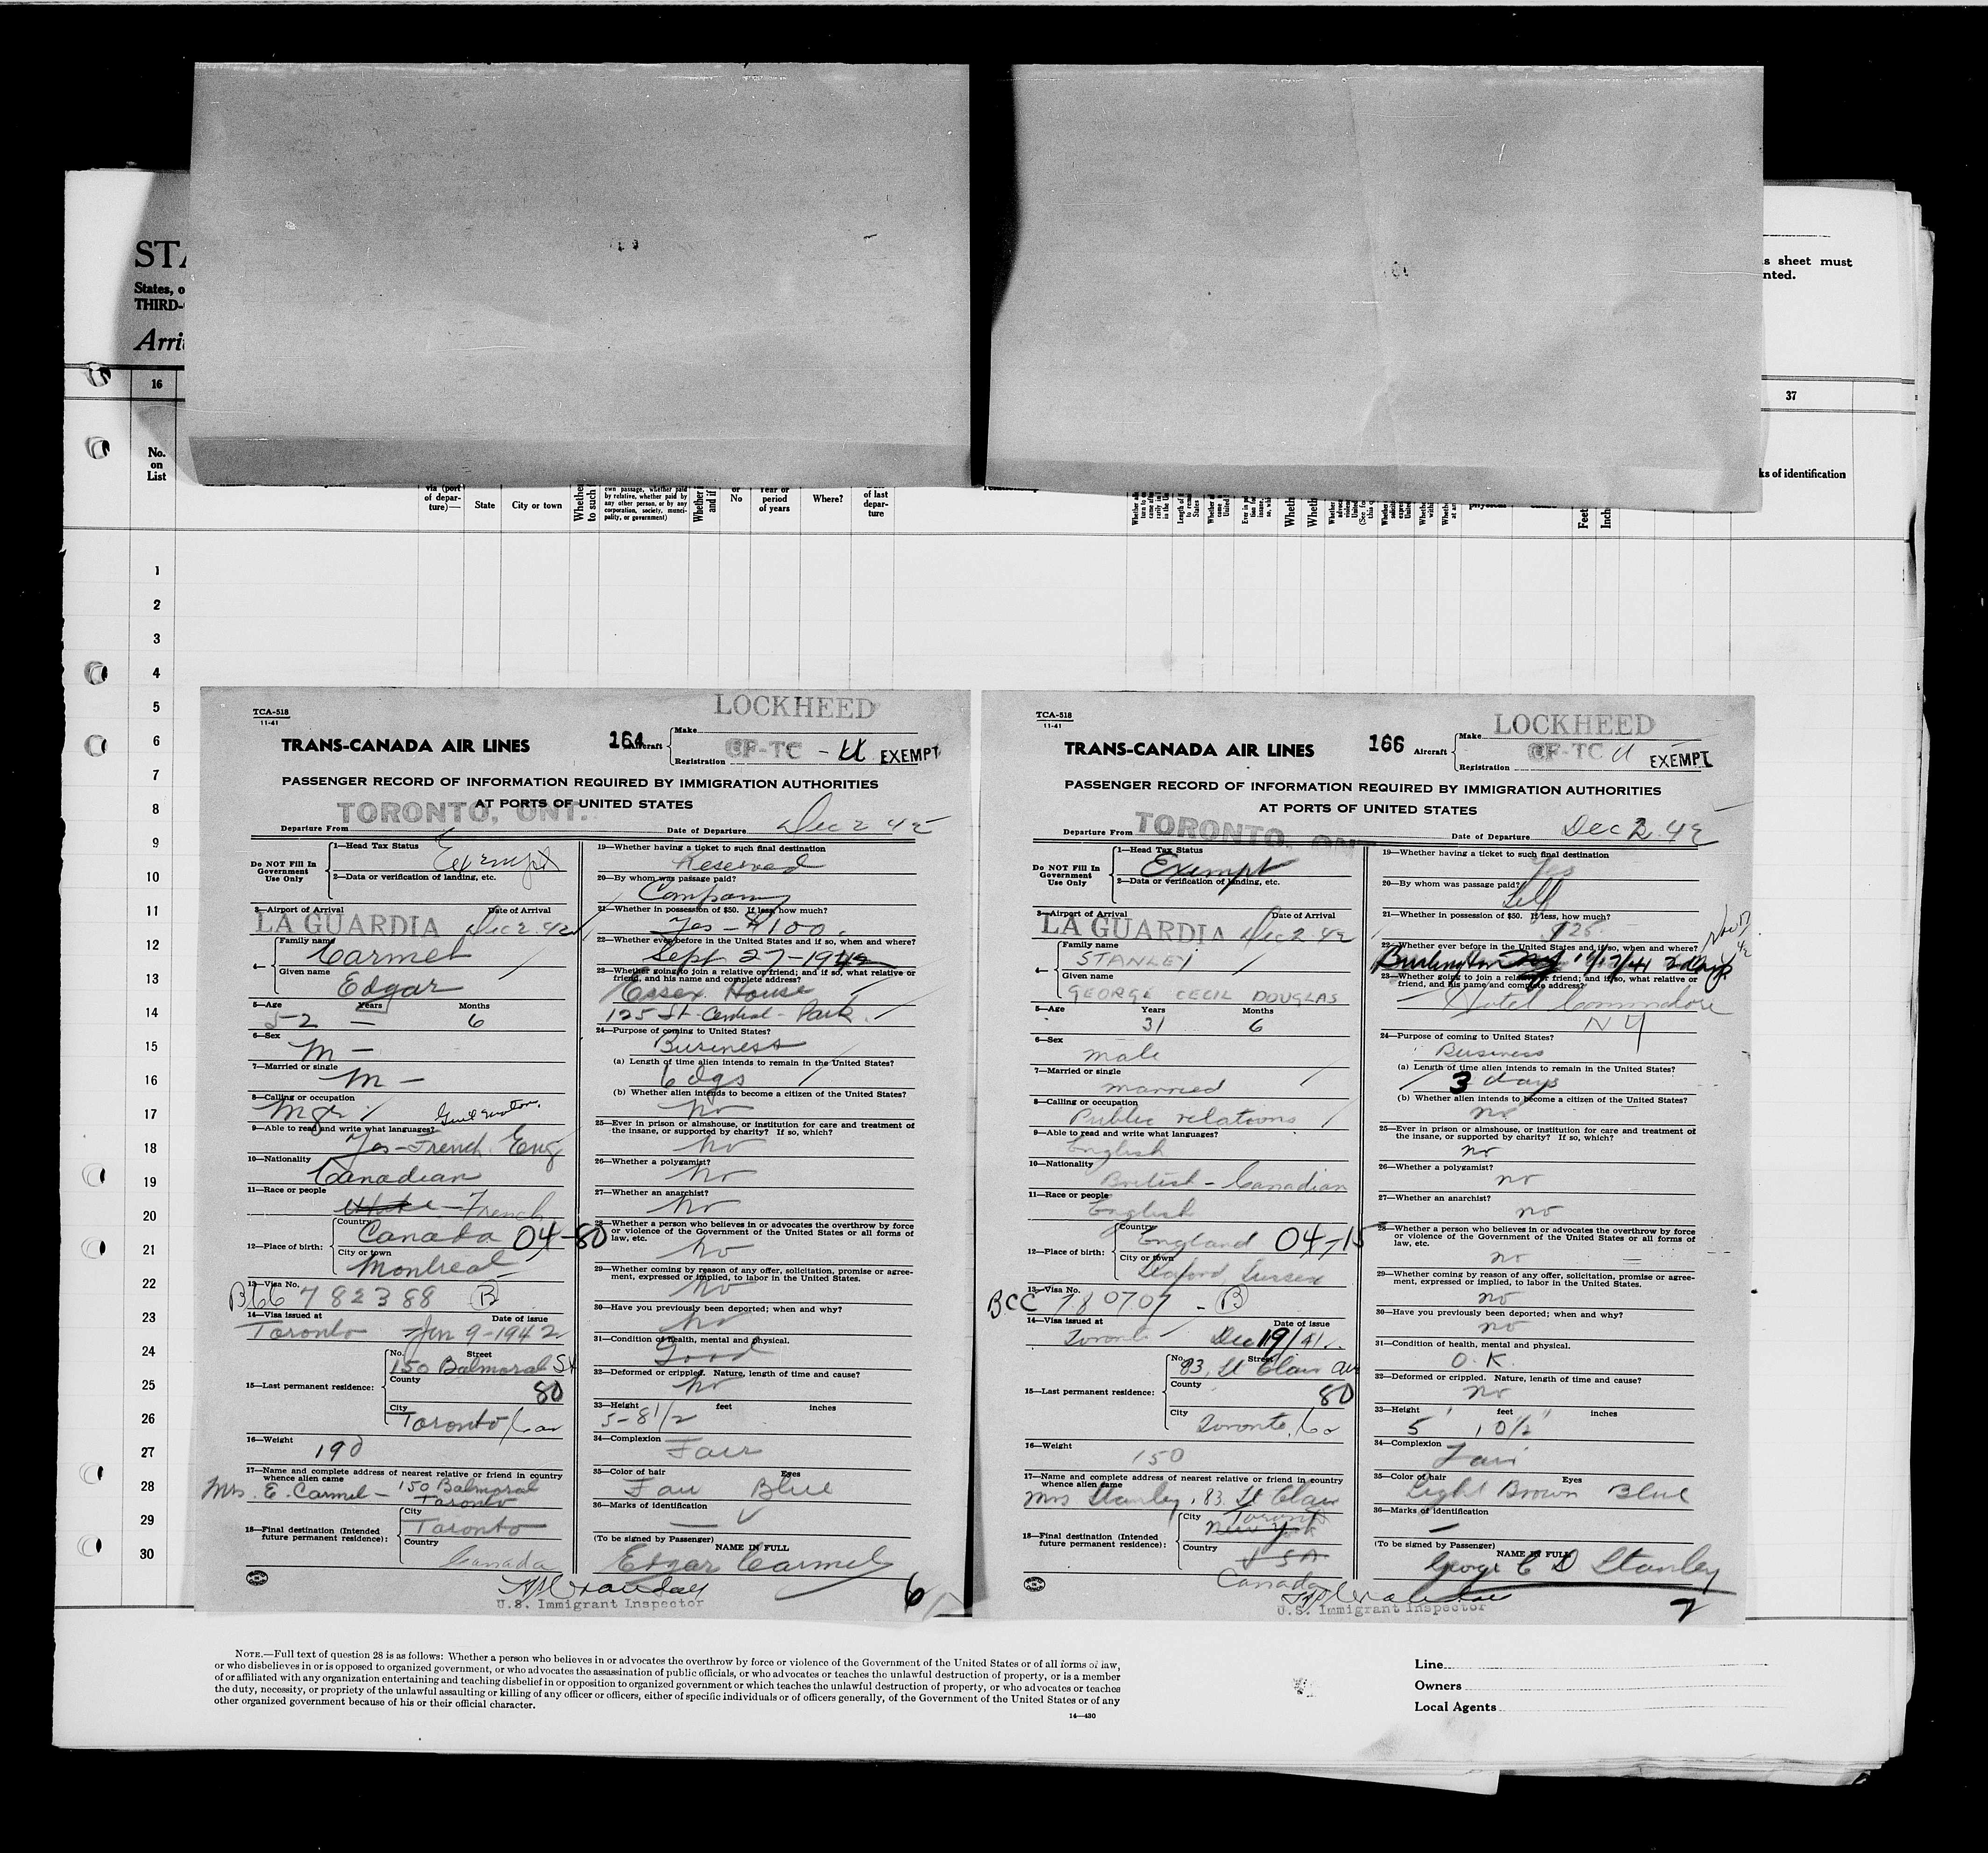 STA
States, o
THIRD-
Arri
s sheet must
nted.
16
37
No.
on
List
via (port
of depar-
ture)—
State
City or town
Whether
to such
own passage, whether paid
by relative, whether paid by
any other person, or by any
corporation, society, munici-
pality, or government)
Whether i
and if
or
No
Year or
period
of years
Where?
of last
depar-
ture
Feet
Inch
ks of identification
1
2
3
4
5
6
7
8
9
10
11
12
13
14
15
16
17
18
19
20
21
22
23
24
25
26
27
28
29
30
TCA-518
11-41
LOCKHEED
TRANS-CANADA AIR LINES
164
Aircraft
Make
Registration CF-TC - U EXEMPT
PASSENGER RECORD OF INFORMATION REQUIRED BY IMMIGRATION AUTHORITIES
AT PORTS OF UNITED STATES
Departure From TORONTO, ONT.
Date of Departure Dec 2 42
Do NOT Fill In
Government
Use Only
1—Head Tax Status Exempt
2—Data or verification of landing, etc.
3—Airport of Arrival LA GUARDIA
Date of Arrival Dec 2. 42
4—
Family name Carmel
Given name Edgar
5—Age Years 52 — Months 6
6—Sex M —
7—Married or single M —
8—Calling or occupation Mgr
9—Able to read and write what languages? Yes—French Eng
10—Nationality Canadian
11—Race or people White — French
12—Place of birth:
Country Canada 04-80
City or town Montreal
13—Visa No. 782388 B
14—Visa issued at Toronto
Date of issue Jan 9-1942
15—Last permanent residence:
No. Street 150 Balmoral St
County 80
City Toronto, Can
16—Weight 190
17—Name and complete address of nearest relative or friend in country
whence alien came
Mrs. E. Carmel — 150 Balmoral
Toronto
18—Final destination (Intended
future permanent residence):
City Toronto
Country Canada
19—Whether having a ticket to such final destination
Reserved
20—By whom was passage paid?
Company
21—Whether in possession of $50. If less, how much?
Yes — $100.
22—Whether ever before in the United States and if so, when and where?
Sept 27-1942
23—Whether going to join a relative or friend; and if so, what relative or
friend, and his name and complete address?
Essex House
125 St. Central Park.
24—Purpose of coming to United States?
Business
(a) Length of time alien intends to remain in the United States?
6 dys
(b) Whether alien intends to become a citizen of the United States?
no
25—Ever in prison or almshouse, or institution for care and treatment of
the insane, or supported by charity? If so, which?
no
26—Whether a polygamist?
no
27—Whether an anarchist?
no
28—Whether a person who believes in or advocates the overthrow by force
or violence of the Government of the United States or all forms of
law, etc.
no
29—Whether coming by reason of any offer, solicitation, promise or agree-
ment, expressed or implied, to labor in the United States.
no
30—Have you previously been deported; when and why?
no
31—Condition of health, mental and physical.
Good
32—Deformed or crippled. Nature, length of time and cause?
no
33—Height feet inches
5-8 1/2
34—Complexion
Fair
35—Color of hair Eyes
Fair Blue
36—Marks of identification
—
(To be signed by Passenger)
NAME IN FULL
Edgar Carmel
U.S. Immigrant Inspector
6
TCA-518
11-41
LOCKHEED
TRANS-CANADA AIR LINES
166
Aircraft
Make
Registration CF-TC U EXEMPT
PASSENGER RECORD OF INFORMATION REQUIRED BY IMMIGRATION AUTHORITIES
AT PORTS OF UNITED STATES
Departure From TORONTO, ONT
Date of Departure Dec 2. 42
Do NOT Fill In
Government
Use Only
1—Head Tax Status Exempt
2—Data or verification of landing, etc.
3—Airport of Arrival LA GUARDIA
Date of Arrival Dec 2. 42
4—
Family name STANLEY
Given name GEORGE CECIL DOUGLAS
5—Age Years 31 Months 6
6—Sex male
7—Married or single married
8—Calling or occupation Public relations
9—Able to read and write what languages? English
10—Nationality British - Canadian
11—Race or people English
12—Place of birth:
Country England 04-15
City or town Seaford, Sussex
13—Visa No. BCC 780707 - B
14—Visa issued at Toronto
Date of issue Dec 19/41.
15—Last permanent residence:
No. Street 83, St Clair Ave
County 80
City Toronto, Ca
16—Weight 150
17—Name and complete address of nearest relative or friend in country
whence alien came
Mrs Stanley, 83. St Clair
Toronto
18—Final destination (Intended
future permanent residence):
City New York
Country USA
Canada
19—Whether having a ticket to such final destination
Yes
20—By whom was passage paid?
Self
21—Whether in possession of $50. If less, how much?
$25.
22—Whether ever before in the United States and if so, when and where?
Burlington
23—Whether going to join a relative or friend; and if so, what relative or
friend, and his name and complete address?
Hotel Commodore
NY
24—Purpose of coming to United States?
Business
(a) Length of time alien intends to remain in the United States?
3 days
(b) Whether alien intends to become a citizen of the United States?
no
25—Ever in prison or almshouse, or institution for care and treatment of
the insane, or supported by charity? If so, which?
no
26—Whether a polygamist?
no
27—Whether an anarchist?
no
28—Whether a person who believes in or advocates the overthrow by force
or violence of the Government of the United States or all forms of
law, etc.
no
29—Whether coming by reason of any offer, solicitation, promise or agree-
ment, expressed or implied, to labor in the United States.
no
30—Have you previously been deported; when and why?
no
31—Condition of health, mental and physical.
O.K.
32—Deformed or crippled. Nature, length of time and cause?
no
33—Height feet inches
5' 10 1/2"
34—Complexion
Fair
35—Color of hair Eyes
Light Brown Blue
36—Marks of identification
—
(To be signed by Passenger)
NAME IN FULL
George C D Stanley
U.S. Immigrant Inspector
7
NOTE.—Full text of question 28 is as follows: Whether a person who believes in or advocates the overthrow by force or violence of the Government of the United States or of all forms of law,
or who disbelieves in or is opposed to organized government, or who advocates the assassination of public officials, or who advocates or teaches the unlawful destruction of property, or is a member
of or affiliated with any organization entertaining and teaching disbelief in or opposition to organized government or which teaches the unlawful destruction of property, or who advocates or teaches
the duty, necessity, or propriety of the unlawful assaulting or killing of any officer or officers, either of specific individuals or of officers generally, of the Government of the United States or of any
other organized government because of his or their official character.
14—430
Line
Owners
Local Agents